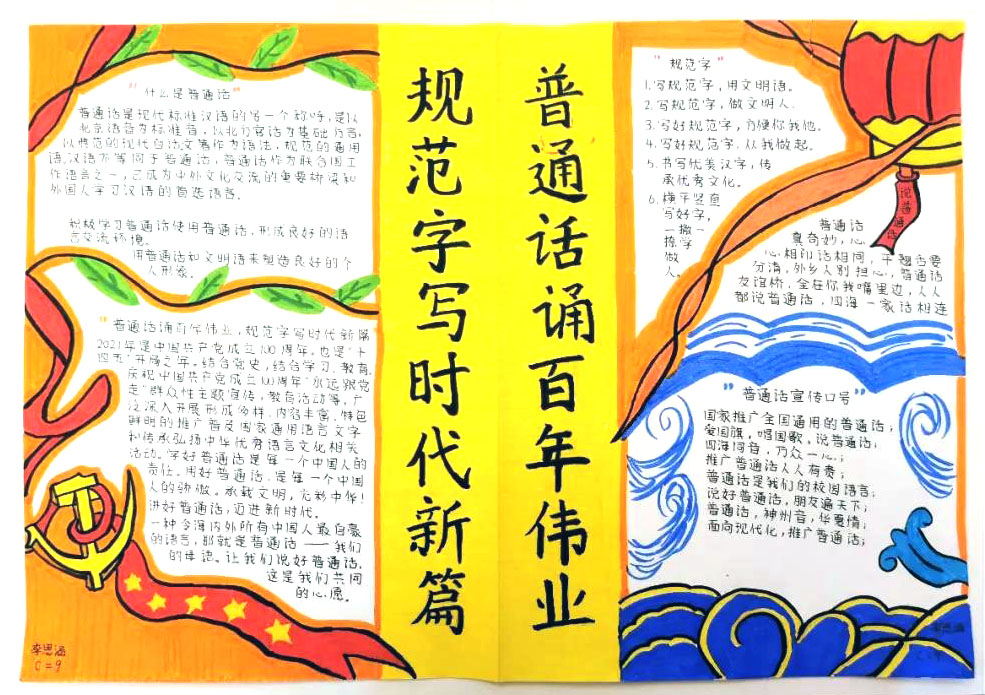 普通话诵百年伟业
规范字写时代新篇
"什么是普通话"
普通话是现代标准汉语的另一个称呼,是以
北京语音为标准音,以北方官话为基础方言,
以典范的现代白话文著作为语法,规范的通用
语汉语不等同于普通话,普通话作为联合国工
作语言之一,已成为中外文化交流的重要桥梁和
外国人学习汉语的首选语言.
积极学习普通话使用普通话,形成良好的语
言交流环境.
用普通话和文明语来塑造良好的个
人形象.
"普通话诵百年伟业,规范字写时代新篇
2021年是中国共产党成立100周年,也是"十
四五"开局之年。结合党史,结合学习、教育、
庆祝中国共产党成立100周年"永远跟党
走"群众性主题宣传,教育活动等,广
泛深入开展形成多样、内容丰富、特色
鲜明的推广普及国家通用语言文字
和传承弘扬中华优秀语言文化相关
活动。学好普通话是每一个中国人的
责任。用好普通话,是每一个中国
人的骄傲。承载文明,光彩中华!
讲好普通话,迈进新时代。
一种令海内外所有中国人最自豪
的语言,那就是普通话——我们
的母语。让我们说好普通话,
这是我们共同
的心愿。
李思涵
C=9
"规范字"
1.写规范字,用文明语。
2.写规范字,做文明人.
3.写好规范字,方便你我他。
4.写好规范字,从我做起。
5.书写优美汉字,传
承优秀文化。
6.横平竖直
写好字,
一撇一
捺学
做
人。
说普通话
普通话
真奇妙,心
心相印话相同,平翘舌要
分清,外乡人别担心,普通话
友谊桥,全在你我嘴里边,人人
都说普通话,四海一家话相连
"普通话宣传口号"
国家推广全国通用的普通话;
爱国旗,唱国歌,说普通话;
四海同音,万众一心;
推广普通话人人有责;
普通话是我们的校园语言;
说好普通话,朋友遍天下;
普通话,神州音,华夏情;
面向现代化,推广普通话;
李思涵